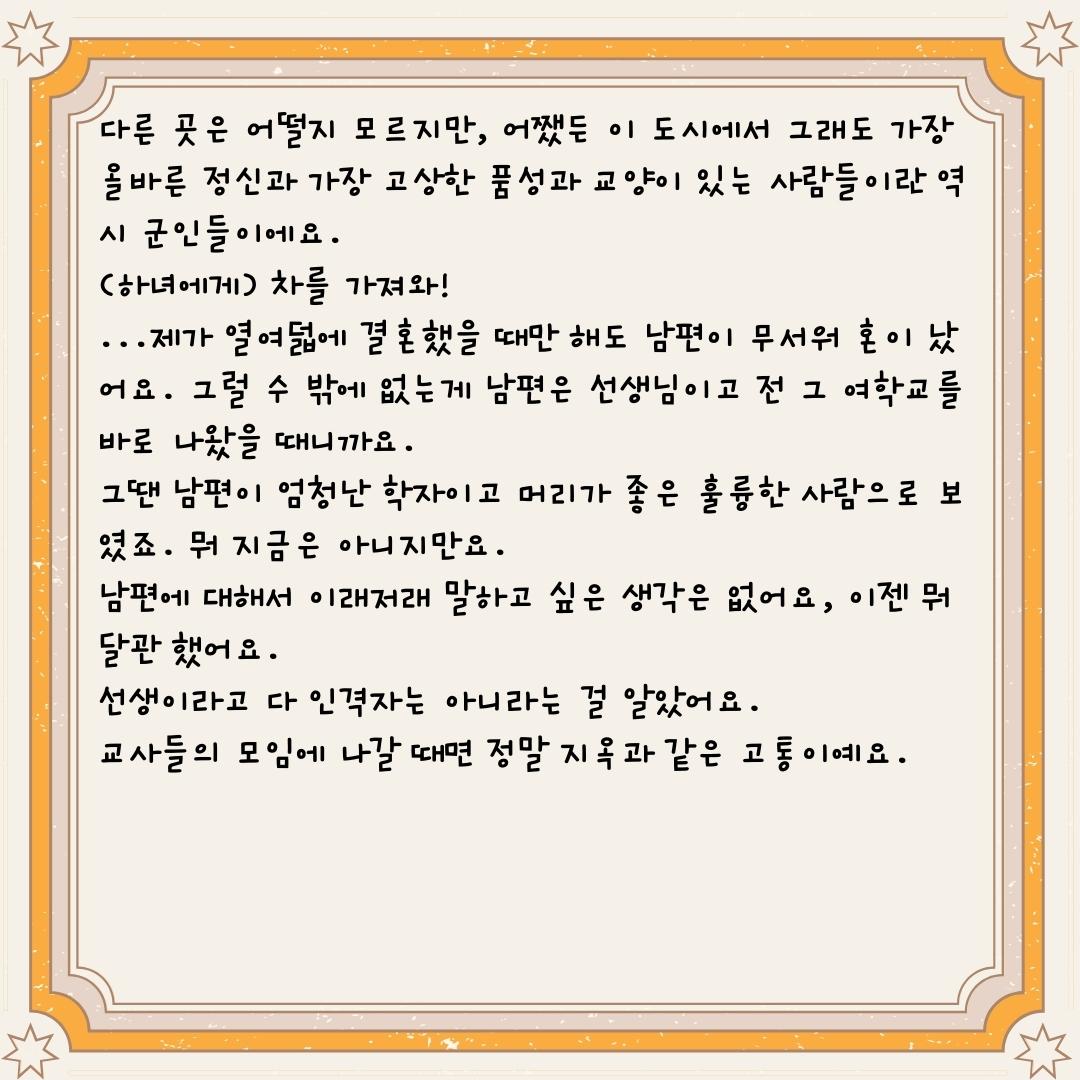 다른 곳은 어떨지 모르지만, 어쨌든 이 도시에서 그래도 가장
올바른 정신과 가장 고상한 품성과 교양이 있는 사람들이란 역
시 군인들이에요.
(하녀에게) 차를 가져와!
...제가 열여덟에 결혼했을 때만 해도 남편이 무서워 혼이 났
어요. 그럴 수 밖에 없는게 남편은 선생님이고 전 그 여학교를
바로 나왔을 때니까요.
그땐 남편이 엄청난 학자이고 머리가 좋은 훌륭한 사람으로 보
였죠. 뭐 지금은 아니지만요.
남편에 대해서 이래저래 말하고 싶은 생각은 없어요, 이젠 뭐
달관 했어요.
선생이라고 다 인격자는 아니라는 걸 알았어요.
교사들의 모임에 나갈 때면 정말 지옥과 같은 고통이예요.